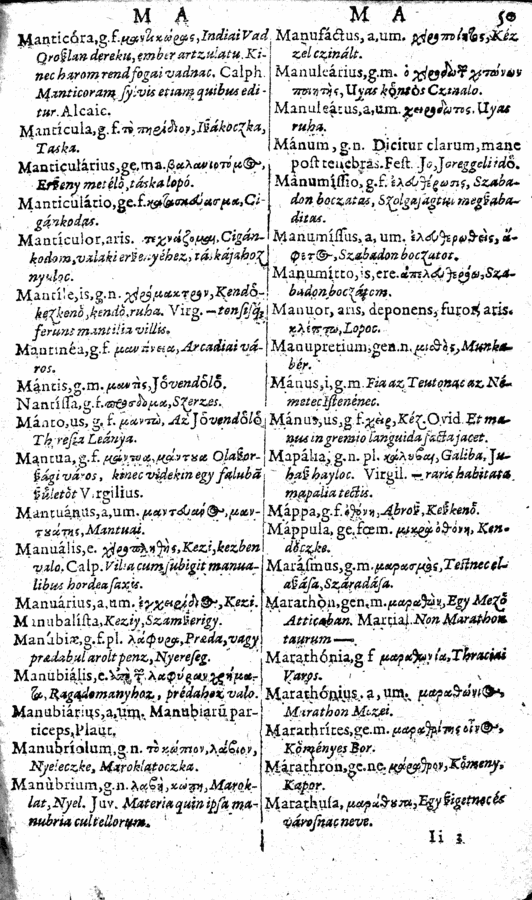 M A
Manticóra, g.f. μαντικώρας, Indiai Vad
Oroſlan dereku, ember artzulatu. Ki-
nec harom rend fogai vadnac. Calph.
Manticoram, ſylvis etiam quibus edi-
tur. Alcaic.
Mantícula, g.f. τὸ πηρίδιον,
Taska.
Manticulárius, ge. ma.
Erſeny metélö, táska lopó.
Manticulátio, ge. f. Ci-
gánkodas.
Mantículor, aris. τεχνάζομαι, Cigán-
kodom, valaki táskájahoz
nyuloc.
Mantíle, is, g.n. χειρόμακτρον, Kendö-
kezkenö, kendö ruha. Virg. —tonſiſq;
ferunt mantilia villis.
Mantinéa, g.f. μαντίνεια, Arcadiai vá-
ros.
Mántis, g.m. μαντὶς, Jövendölö.
Nantíſſa, g.f. Szerzes.
Mánto, us, g. f. μαντὼ, Az Jövendölö
Thyreſia Leánya.
Mantua, g.f. μάντυα, Olaſor-
ſági város, kinec videkin egy faluba
ſületöt Virgilius.
Mantuánus, a, um. μαντουανὸς, μαν-
τυάτης, Mantuai.
Manuális, e. χειροπληθὴς, Kezi, kezben
valo. Calp. Vilia cum ſubigit manua-
libus hordea ſaxis.
Manuárius, a, um. ἐγχειρίδιος, Kezi.
Manubalíſta, Keziy, Szamſerigy.
Manúbiæ, g.f. pl. λάφυρα, Præda, vagy
prædabul arolt penz, Nyereſeg.
Manubiális, e.
Ragadomanyhoz, prédahoz valo.
Manubiárius, a, um. Manubiarũ par-
ticeps, Plaut.
Manubríolum, g.n. τὸ κώπιον, λάβιον,
Nyeleczke, Maroklatoczka.
Manúbrium, g.n. λαβὴ, κώπη, Marok-
lat, Nyel. Juv. Materia quin ipſa ma-
nubria cultellorum.
M A 50
Manufáctus, a, um. χειροποίητος, Kéz-
zel czinált.
Manuleárius, g.m.
ποιητὴς, Uyas köntös Czinalo.
Manuleátus, a, um. χειριδωτος. Uyas
ruha.
Mánum, g.n. Dicitur clarum, mane
poſt tenebras. Feſt. Jo, Joreggeli idö.
Manumíſſio, g.f. ἐλευθέρωσις, Szaba-
don boczatas, Szolgaſagtul megſaba-
ditas.
Manumíſſus, a, um. ἐλευθερωθεὶς, ἄ-
φετος, Szabadon boczatot.
Manumitto, is, ere. ἀπελευθερόω, Sza-
badon boczátom.
Manuor, aris, deponens, furor, aris.
κλέπτω, Lopoc.
Manupretium, gen.n. μισθὸς, Munka
bér.
Mánus, i, g.m. Fia az Teutonac az Né-
metec Iſtenénec.
Mánus, us, g f. χεὶρ, Kéz. Ovid. Et ma-
nus in gremio languida facta jacet.
Mapália, g.n. pl. καλύβαι, Galiba, Ju-
haſ hayloc. Virgil. —raris habitata
mapalia tectis.
Máppa, g.f. ὀθόνη, Abroſ, Keſkenö.
Máppula, ge. fœm. μικρὰ ὀθόνη, Ken-
döczke.
Maráſmus, g.m. μαρασμὸς, Teſtnec el-
aſáſa, Száradáſa.
Marathon, gen.m. μαραθὼν, Egy Mezö
Atticaban. Martial. Non Marathon
taurum—
Marathónia, g f μαραθωνία, Thraciai
Varos.
Marathónius, a, um, μαραθώνιος,
Marathon Mezei.
Marathrítes, ge.m. μαραθρίτης οἶνος,
Köményes Bor.
Márathron, ge.ne. μάραθρον, Kömeny,
Kapor.
Marathuſa, μαράθουσα, Egy ſigetnec és
városnac neve.
Ii 3